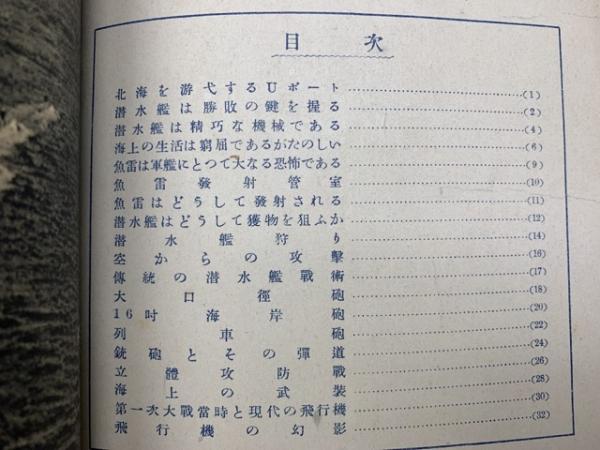 目次
北海を游弋するUボート……(1)
潜水艦は勝敗の鍵を握る……(2)
潜水艦は精巧な機械である……(4)
海上の生活は窮屈であるがたのしい……(6)
魚雷は軍艦にとつて大なる恐怖である……(9)
魚雷發射管室……(10)
魚雷はどうして發射される……(11)
潜水艦はどうして獲物を狙ふか……(12)
潜水艦狩り……(14)
空からの攻擊……(16)
傳統の潜水艦戰術……(17)
大口徑砲……(18)
16吋海岸砲……(20)
列車砲……(22)
銃砲とその彈道……(24)
立體攻防戰……(26)
海上の武裝……(28)
第一次大戰當時と現代の飛行機……(30)
飛行機の幻影……(32)